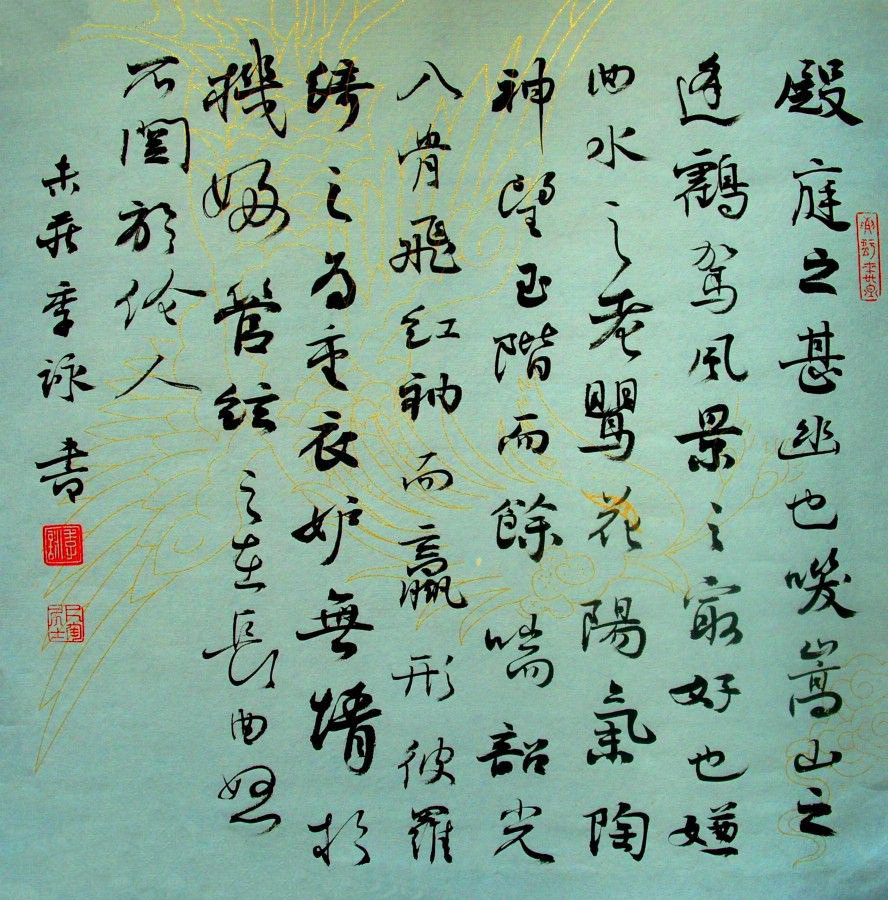 殿庭之甚幽也嵩山之
逢鶴駕風景之最好也嫌
曲水之老鸎花陽氣陶
神望玉階而餘喘韶光
八骨飛紅袖而羸形彼羅
綺之為重衣妒無情於
機婦管絃之在長曲怒
不関於伶人
未莊季詠書